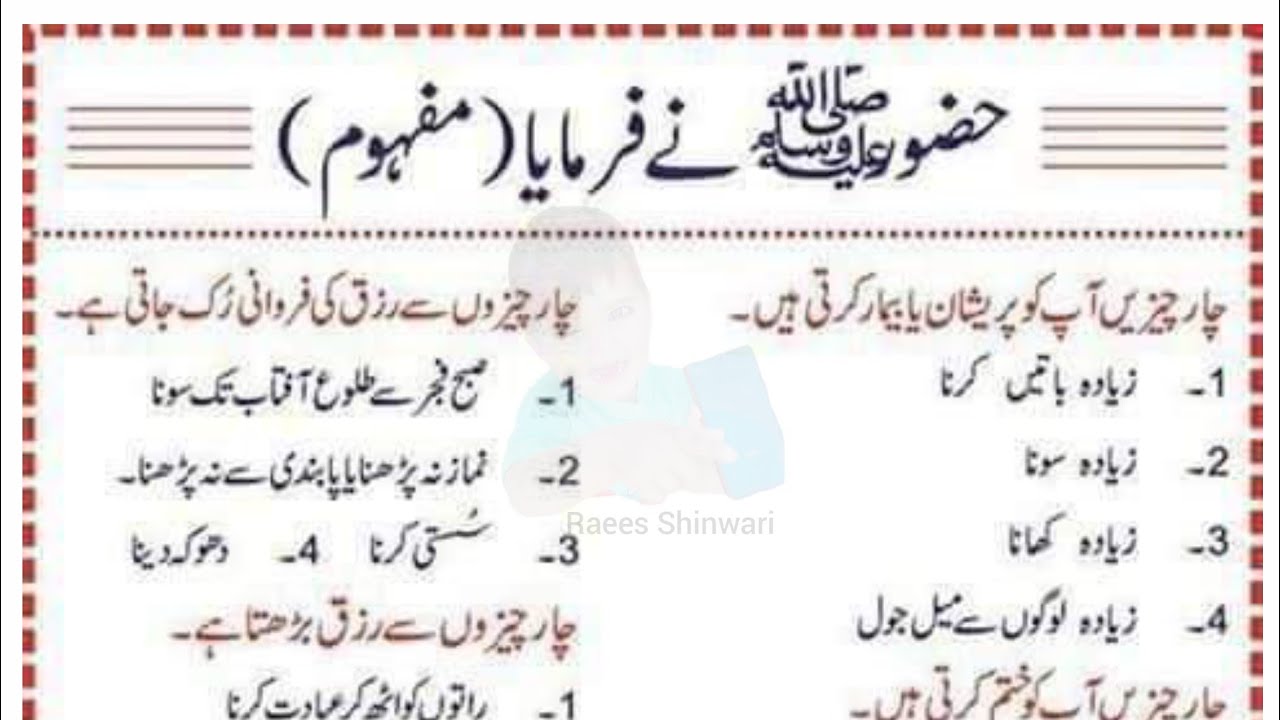 حضور ﷺ نے فرمایا (مفہوم)
چار چیزیں آپ کو پریشان یا بیمار کرتی ہیں۔
1۔ زیادہ باتیں کرنا
2۔ زیادہ سونا
3۔ زیادہ کھانا
4۔ زیادہ لوگوں سے میل جول
چار چیزیں آپ کو ختم کرتی ہیں۔
چار چیزوں سے رزق کی فروانی رُک جاتی ہے۔
1۔ صبح فجر سے طلوع آفتاب تک سونا
2۔ نماز نہ پڑھنا یا پابندی سے نہ پڑھنا۔
3۔ سُستی کرنا 4۔ دھوکہ دینا
چار چیزوں سے رزق بڑھتا ہے۔
1۔ راتوں کو اٹھ کر عبادت کرنا
Raees Shinwari